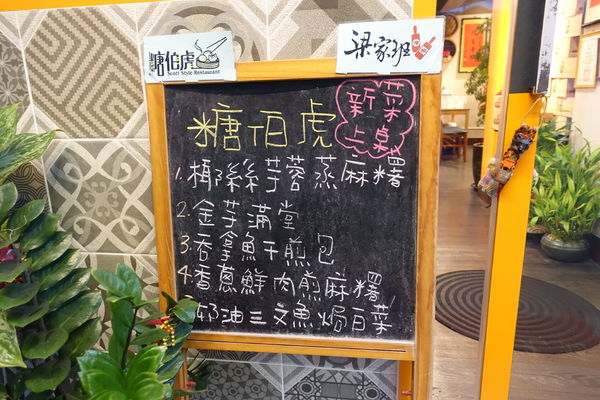 糖伯虎
Scott Style Restaurant
梁家班
糖伯虎
新菜
上桌
1.椰絲芋蓉蒸麻糬
2.金芋滿堂
3.吞拿魚干煎包
4.香蔥鮮肉煎麻糬
奶油三文魚焗白菜